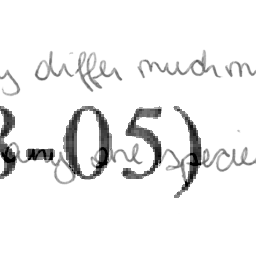 y differ much m
3-05)
any one specie